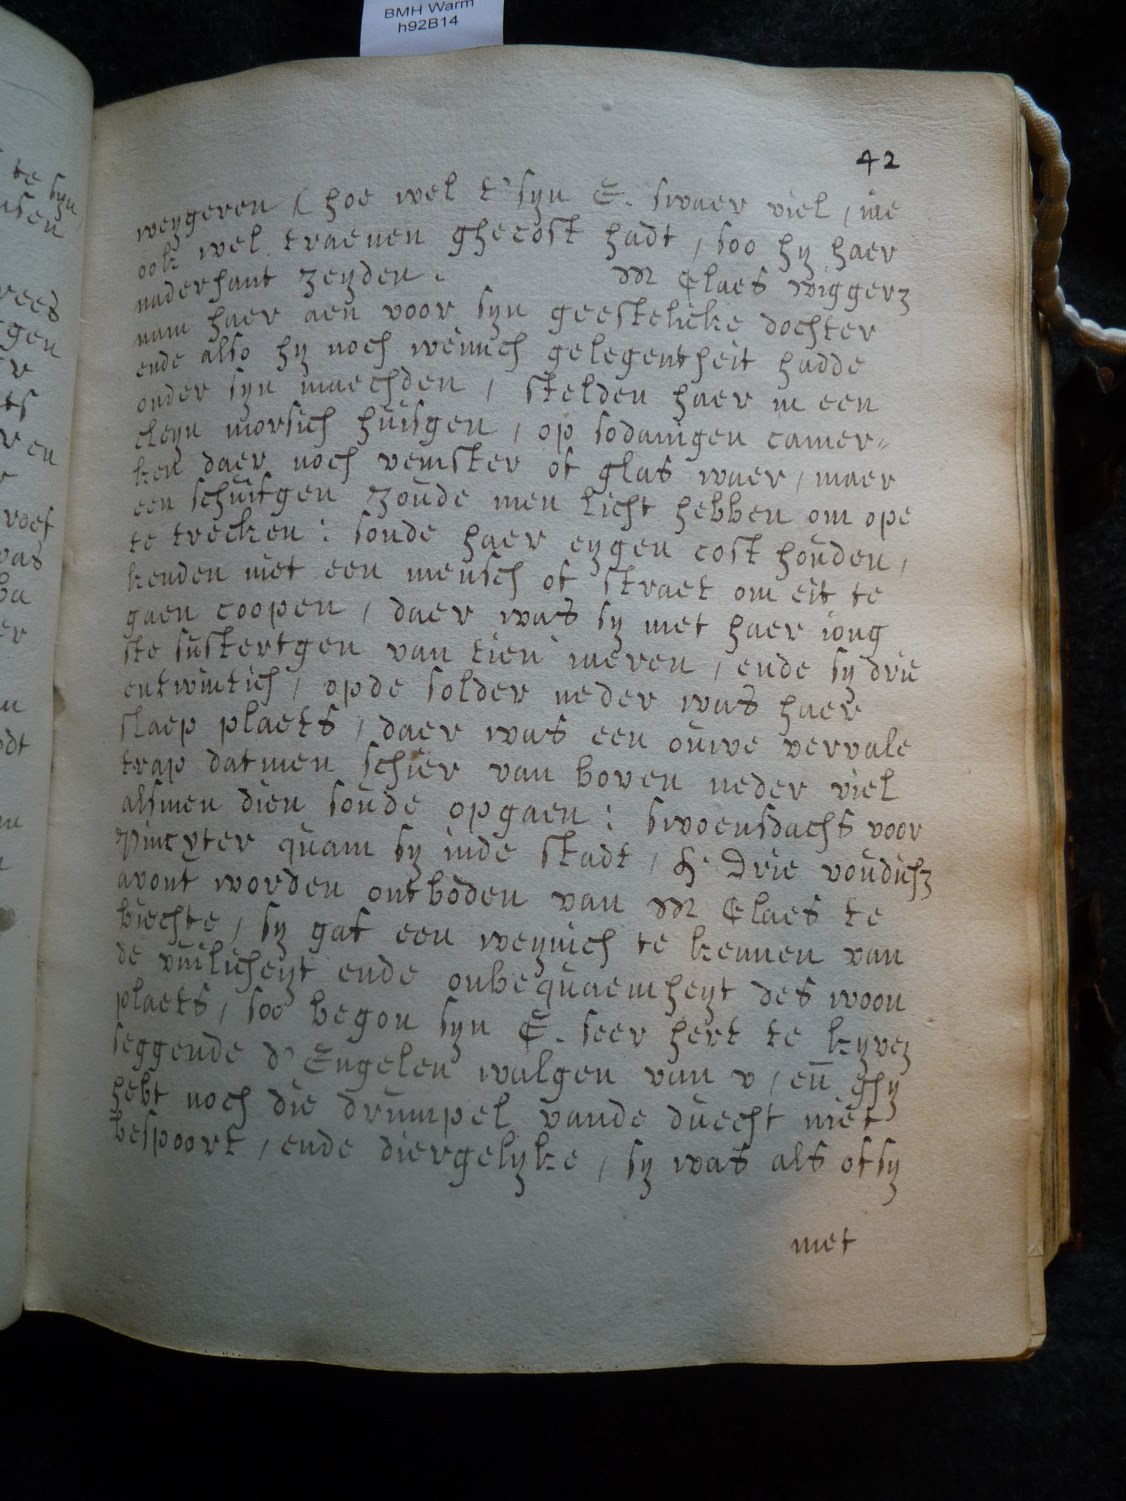 BMH Warm
h92B14
42
weygeren / hoe wel t'syn E. swaer viel / me
ook wel traenen ghecost hadt / soo hy haer
naderhant zeyden. M Claes wiggerz
nam haer aen voor syn geestelicke dochter
ende also hy noch weinich gelegentheit hadde
onder syn maechden / stelden haer in een
cleyn morsich huisgen / op sodanigen camer-
ken daer noch veinster of glas waer / maer
een schuifgen zoude men licht hebben om ope
te trecken: soude haer eygen cost houden /
kenden niet een mensch of straet om eit te
gaen coopen / daer was sy met haer iong
ste sustertgen van tien iaeren / ende sy drie
entwintich / opde solder neder was haer
slaep plaets / daer was een ouwe vervale
trap datmen schier van boven neder viel
alsmen dien soude opgaen: swoensdachs voor
Pincxter quam sy inde stadt / H. Drie voudichz
avont worden ontboden van M Claes te
biechte / sy gaf een weynich te kennen van
de vuilicheyt ende onbequaemheyt des woon
plaets / soo begon syn E. seer hert te kyvez
seggende d'Engelen walgen van v / en ghy
hebt noch die drumpel vande duecht niet
bespoort / ende diergelyke / sy was als of sy
met